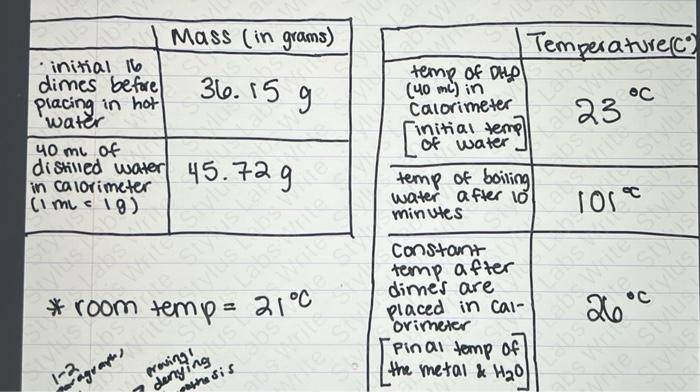 Mass (in grams)
· initial 16
dimes before
placing in hot
water
36.15 g
40 mL of
distilled water
in calorimeter
(1 mL = 1g)
45.72 g
* room temp = 21°C
1-2
paragraphs
proving/
denying
Temperature(C°)
temp of DH2O
(40 mL) in
calorimeter
[initial temp
of water]
23 °C
temp of boiling
water after 10
minutes
101°C
Constant
temp after
dimes are
placed in cal-
orimeter
[Final temp of
the metal & H2O]
26°C